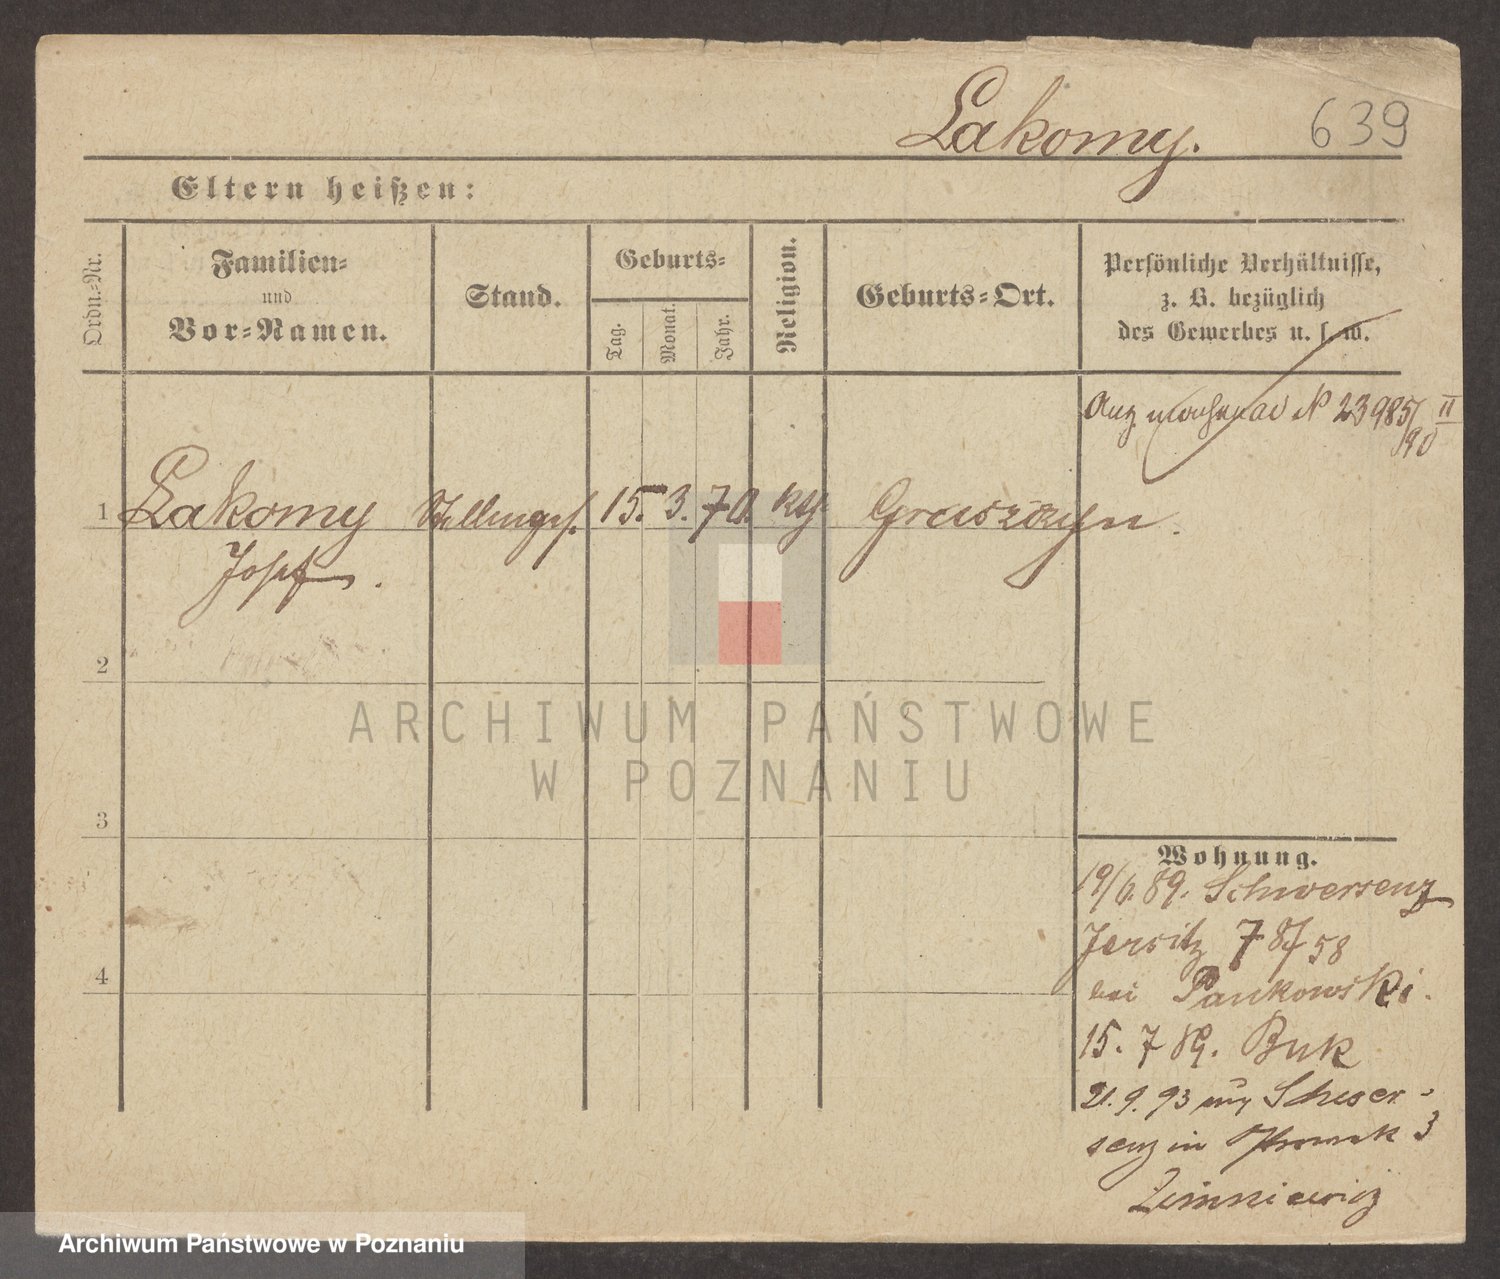 Lakomy. 639
Eltern heißen:
Ordn.-Nr.
Familien-
und
Vor-Namen.
Stand.
Geburts-
Tag.
Monat.
Jahr.
Religion.
Geburts-Ort.
Persönliche Verhältnisse,
z. B. bezüglich
des Gewerbes u. s. w.
N 23985/ II
90
1 Lakomy Stellmges. 15. 3. 70. kth
Josef.
2
3
4
Wohnung.
19/6. 89. Schwersenz
Jersitz
bei Pankowski.
15. 7 89. Buk
21. 9. 93 Schwer-
senz in 3
Zimniewicz
ARCHIWUM PAŃSTWOWE
W POZNANIU
Archiwum Państwowe w Poznaniu